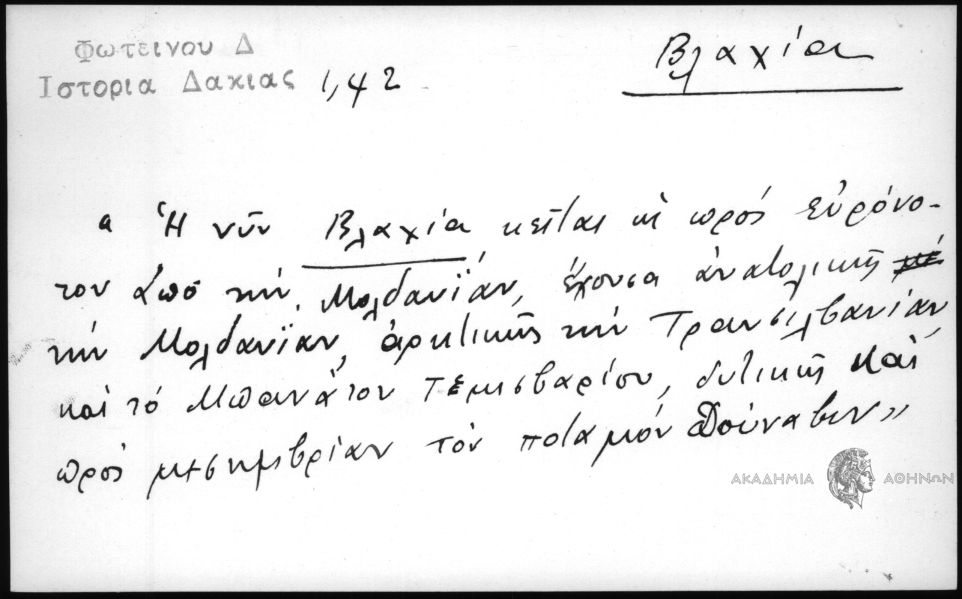 Φωτεινου Δ
Ιστορια Δακιας 1,42
Βλαχία
« Ἡ νῦν Βλαχία κεῖται κὶ πρός εὐρόνο-
τον ἀπό τήν Μολδαυΐαν, ἔχουσα ἀνατολικῆς
τήν Μολδαυΐαν, ἀρκτικῆς τήν Τρανσιλβανίαν
καί τό Μπανάτον Τεμεσβαρίου, δυτικῆς καί
πρός μεσημβρίαν τόν ποταμόν Δούναβιν»
ΑΚΑΔΗΜΙΑ ΑΘΗΝΩΝ